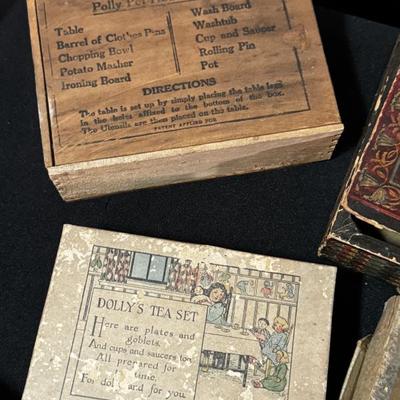 Polly
Table
Barrel of Clothes Pins
Chopping Bowl
Potato Masher
Ironing Board
Wash Board
Washtub
Cup and Saucer
Rolling Pin
Pot
DIRECTIONS
The table is set up by simply placing the table legs
in the holes affixed to the bottom of the box.
The Utensils are then placed on the table.
PATENT APPLIED FOR
DOLLY'S TEA SET
Here are plates and
goblets,
And cups and saucers too
All prepared for
time,
For doll and for you.